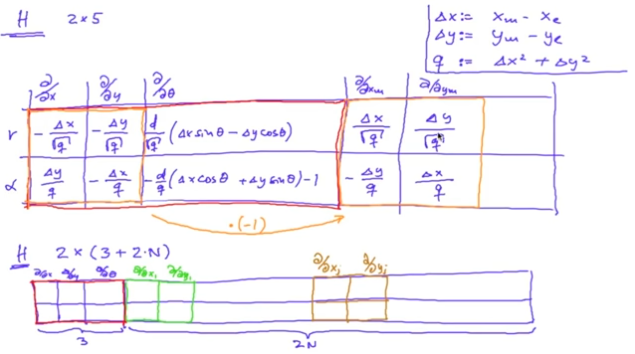 H 2 x 5
Δx := x_m - x_e
Δy := y_m - y_e
q := Δx² + Δy²
∂/∂x ∂/∂y ∂/∂θ ∂/∂x_m ∂/∂y_m
r -Δx/√q -Δy/√q d/√q (Δx sinθ - Δy cosθ) Δx/√q Δy/√q
α Δy/q -Δx/q -d/q (Δx cosθ + Δy sinθ) - 1 -Δy/q Δx/q
·(-1)
H 2 x (3 + 2·N)
∂/∂x ∂/∂y ∂/∂θ ∂/∂x₁ ∂/∂y₁ ∂/∂x_j ∂/∂y_j
3 2N